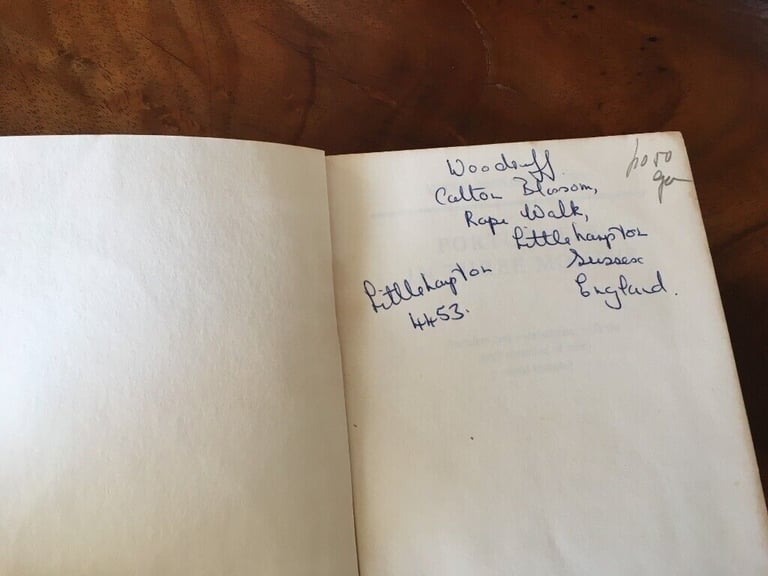 Woodruff.
Calton Blossom,
Rope Walk,
Littlehampton
Sussex
England.
Littlehampton
4453.